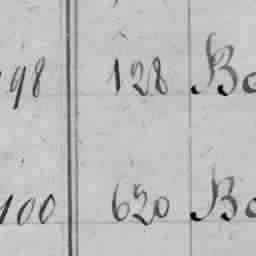 98 128 Bo
100 620 Bo